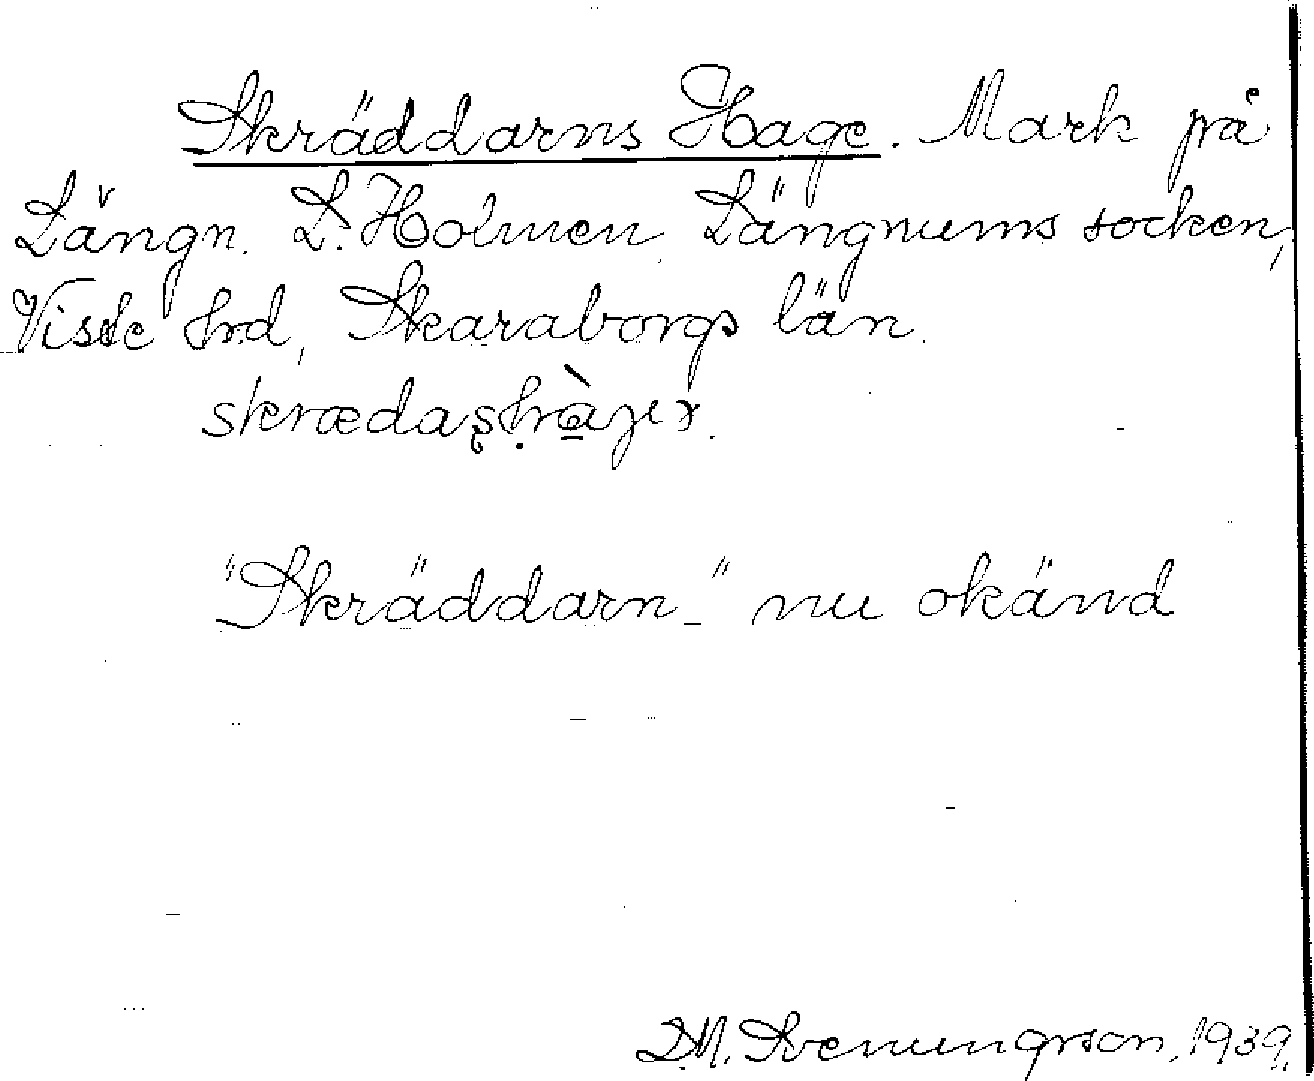 Skräddarns Hage. Mark på
Längn. L. Holmen Längnums socken,
Viste hrd, Skaraborgs län.
"Skräddarn-" nu okänd
D.M. Svenungsson, 1939.